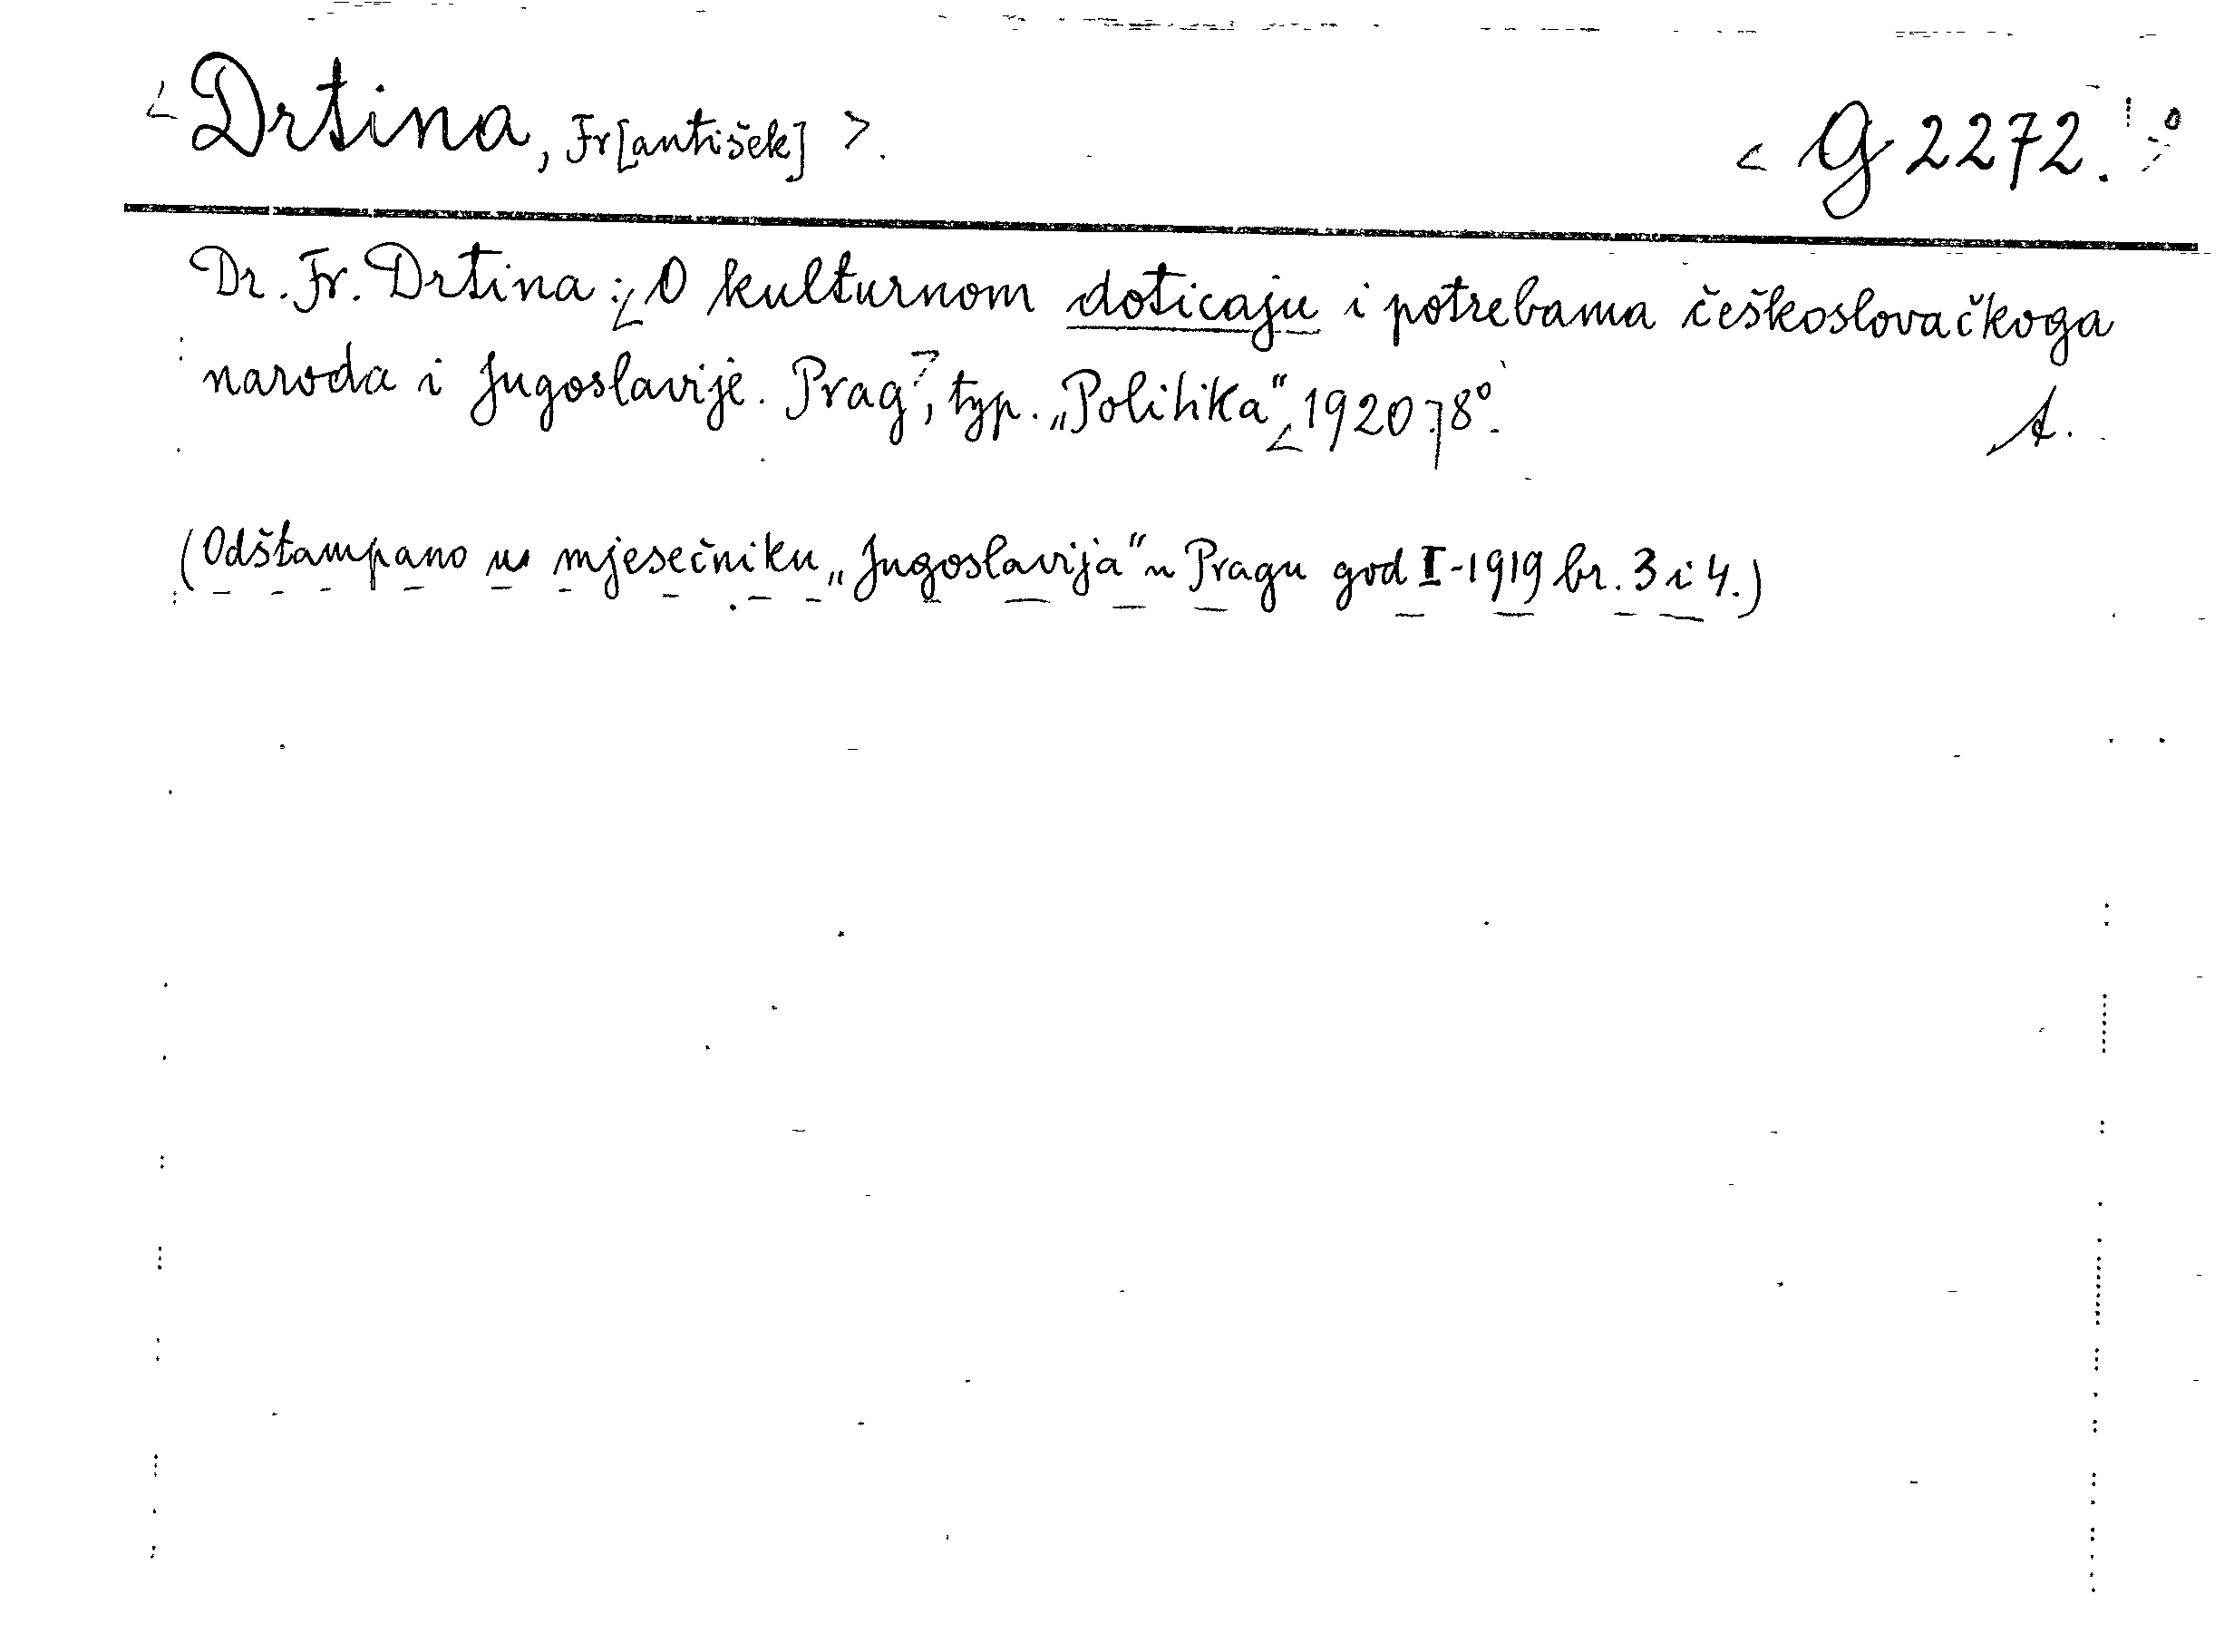 <Drtina, Fr[antišek]>. <G 2272.>
Dr. Fr. Drtina: <O kulturnom doticaju i potrebama češkoslovačkoga
naroda i Jugoslavije. Prag>, typ. „Politika“ <1920.> 8º.
A.
(Odštampano u mjesečniku „Jugoslavija“ u Pragu god I-1919 br. 3 i 4.)